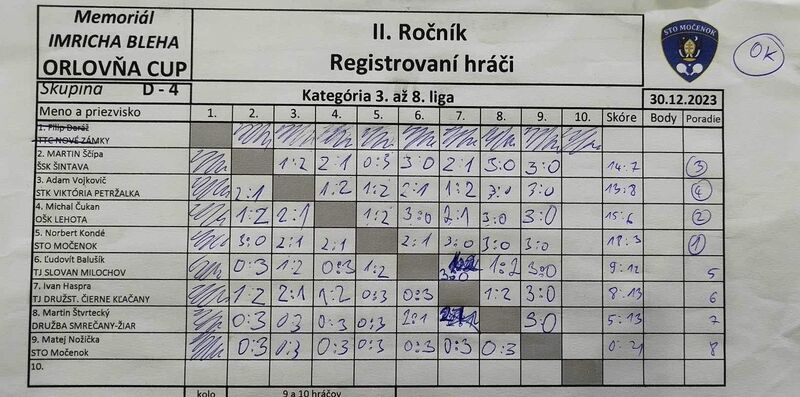 Memoriál
IMRICHA BLEHA
ORLOVŇA CUP
II. Ročník
Registrovaní hráči
STO MOČENOK
OK
Skupina D - 4
Kategória 3. až 8. liga
30.12.2023
Meno a priezvisko 1. 2. 3. 4. 5. 6. 7. 8. 9. 10. Skóre Body Poradie
1. Filip Daráž
TTC NOVÉ ZÁMKY
2. MARTIN Ščípa
ŠSK ŠINTAVA
1:2 2:1 0:3 3:0 2:1 3:0 3:0 14:7 3
3. Adam Vojkovič
STK VIKTÓRIA PETRŽALKA
2:1 1:2 1:2 2:1 1:2 3:0 3:0 13:8 4
4. Michal Čukan
OŠK LEHOTA
1:2 2:1 1:2 3:0 2:1 3:0 3:0 15:6 2
5. Norbert Kondé
STO MOČENOK
3:0 2:1 2:1 2:1 3:0 3:0 3:0 18:3 1
6. Ľudovít Balušík
TJ SLOVAN MILOCHOV
0:3 1:2 0:3 1:2 3:0 1:2 3:0 9:12 5
7. Ivan Haspra
TJ DRUŽST. ČIERNE KĽAČANY
1:2 2:1 1:2 0:3 0:3 1:2 3:0 8:13 6
8. Martin Štvrtecký
DRUŽBA SMREČANY-ŽIAR
0:3 0:3 0:3 0:3 2:1 3:0 5:13 7
9. Matej Nožička
STO Močenok
0:3 0:3 0:3 0:3 0:3 0:3 0:3 0:21 8
10.
kolo 9 a 10 hráčov